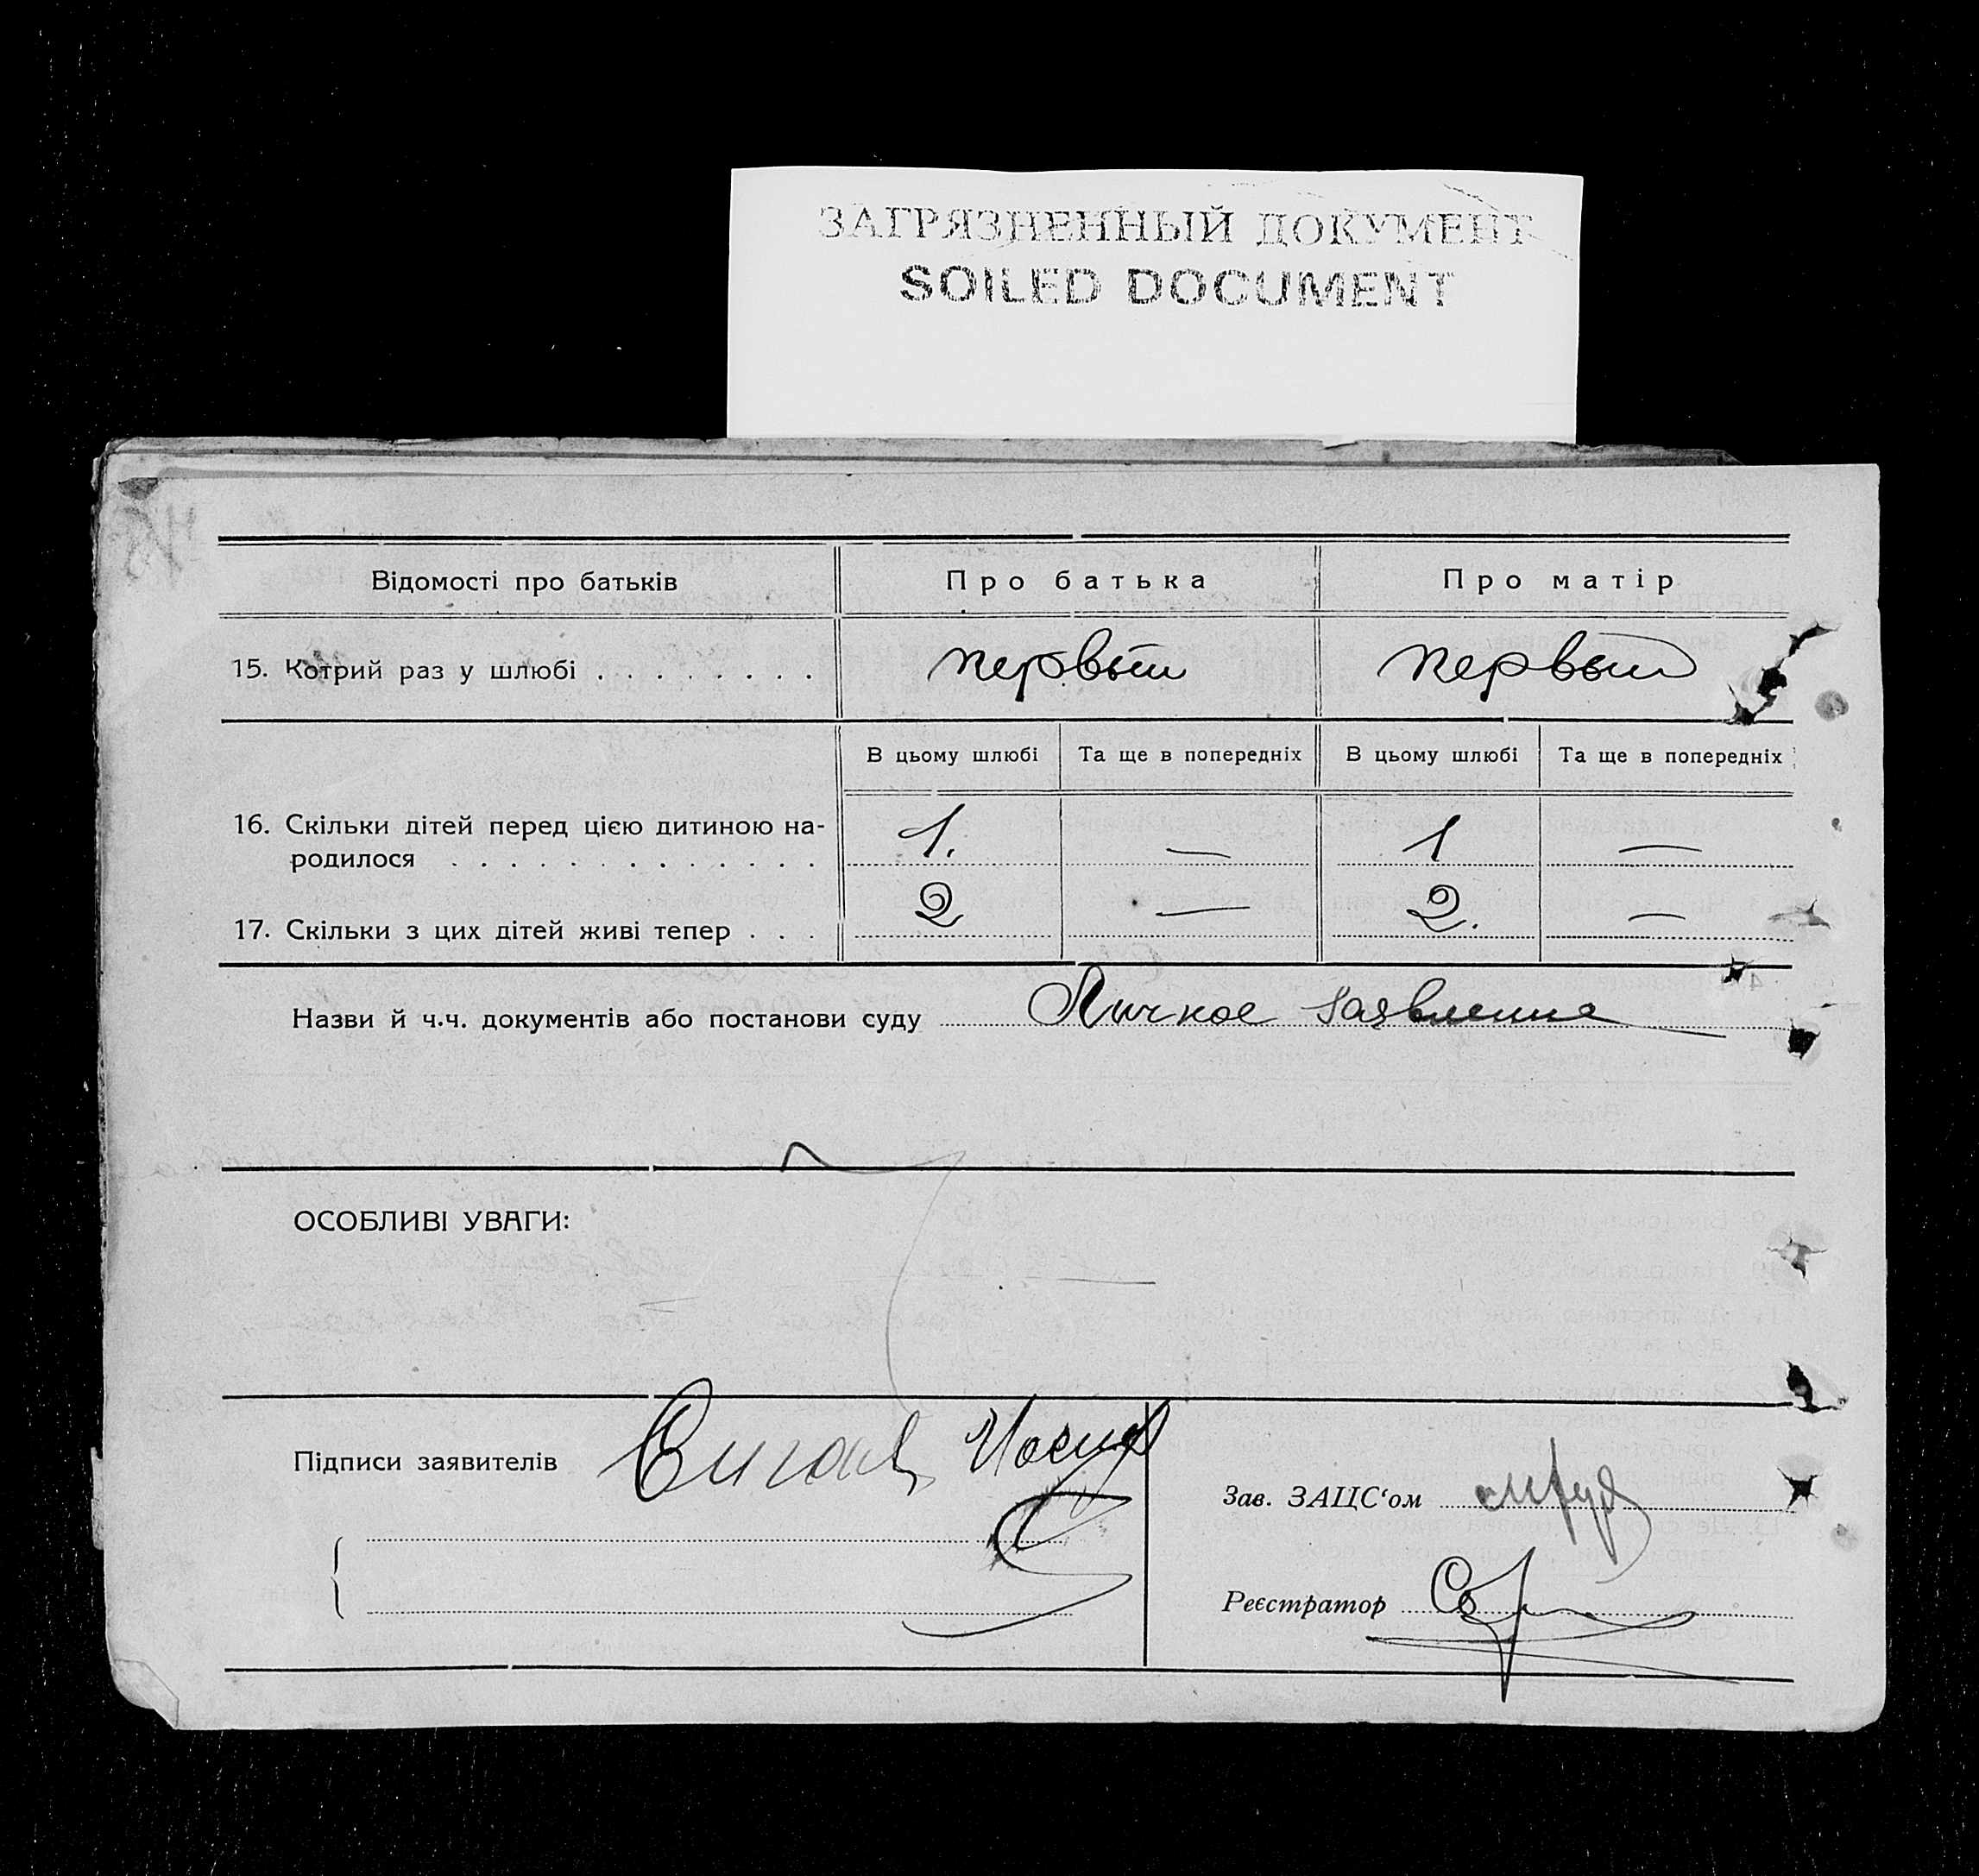 ЗАГРЯЗНЕННЫЙ ДОКУМЕНТ
SOILED DOCUMENT
Відомості про батьків Про батька Про матір
15. Котрий раз у шлюбі . . . . . . . . первый первый
В цьому шлюбі Та ще в попередніх В цьому шлюбі Та ще в попередніх
16. Скільки дітей перед цією дитиною на-
родилося . . . . . . . . . . . . . 1. — 1 —
17. Скільки з цих дітей живі тепер . . . 2 — 2. —
Назви й ч.ч. документів або постанови суду Личное заявление
ОСОБЛИВІ УВАГИ:
Підписи заявителів
Зав. ЗАЦС‘ом
Реєстратор